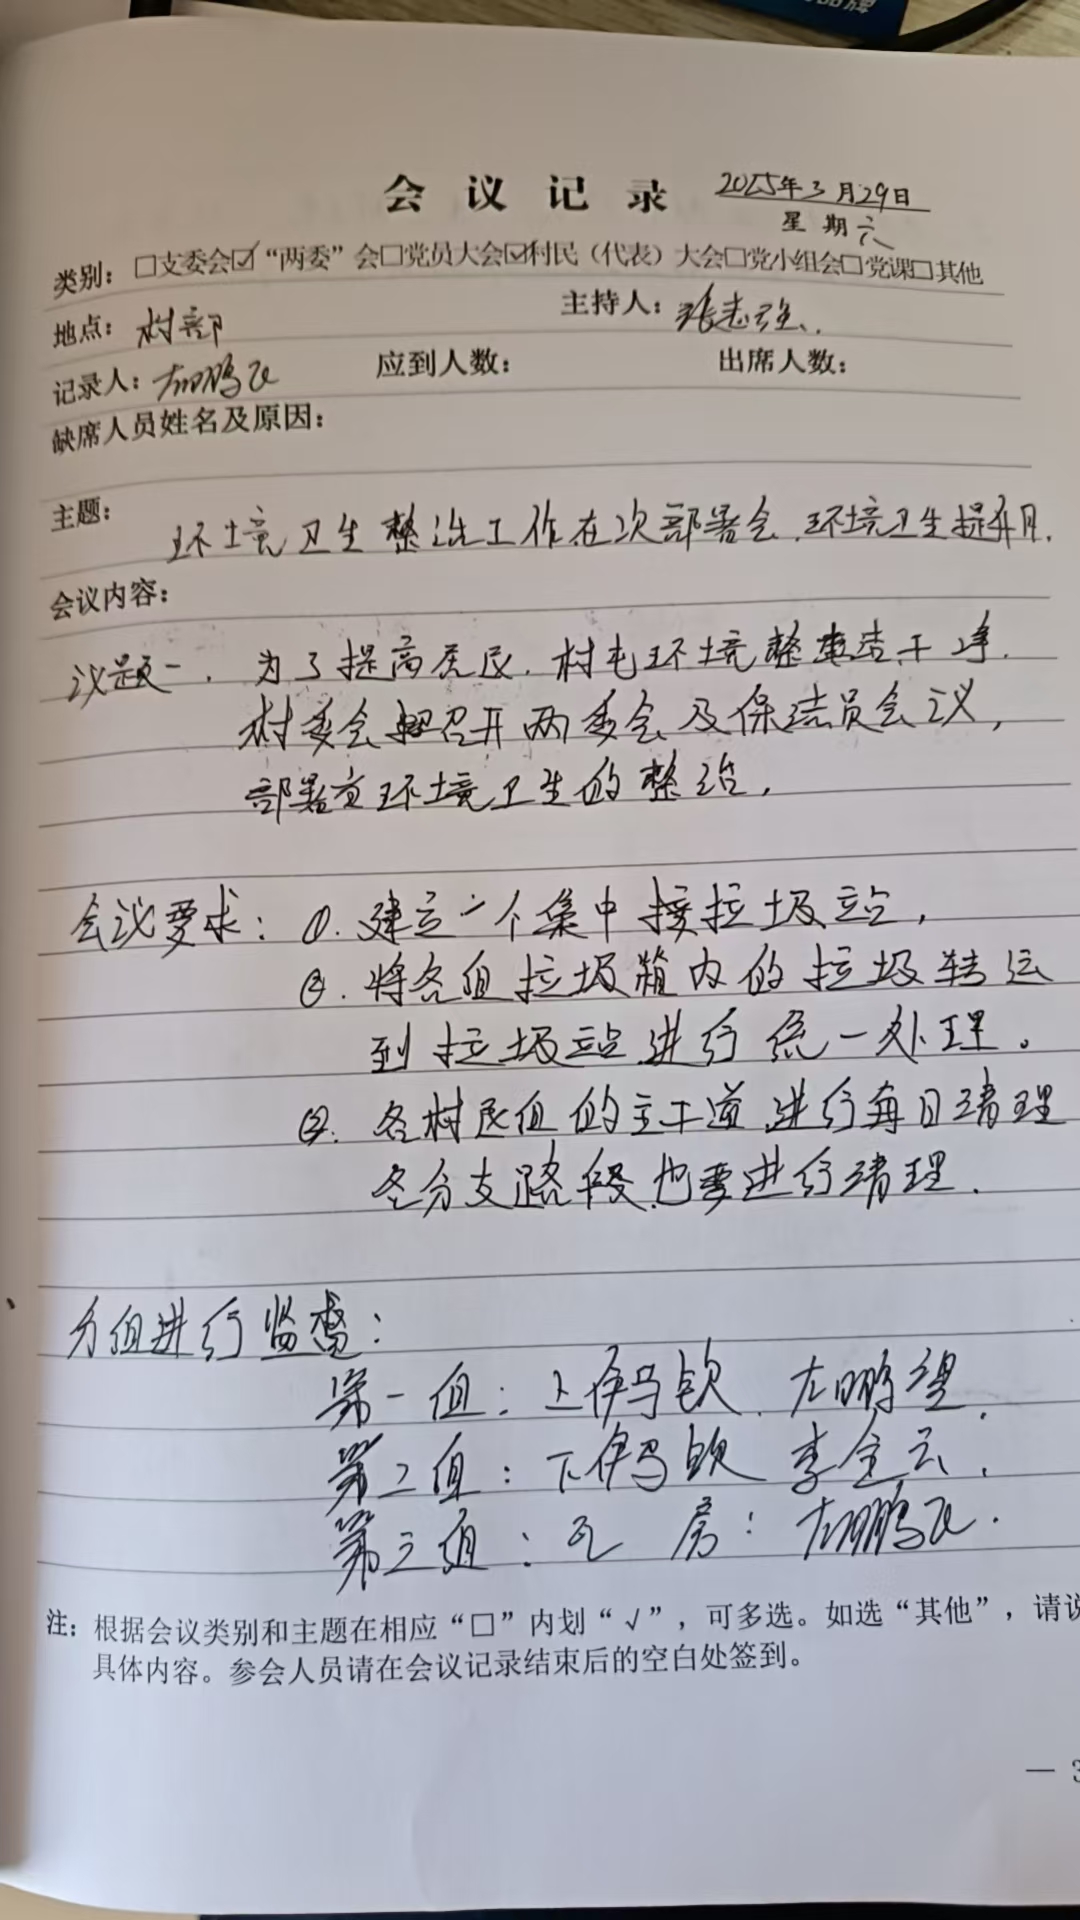 品牌
会议记录 2025年3月29日
星期六
类别：□支委会☑“两委”会□党员大会☑村民（代表）大会□党小组会□党课□其他
地点：村部 主持人：张志强
记录人：左鹏飞 应到人数： 出席人数：
缺席人员姓名及原因：
主题：
环境卫生整洗工作在次部署会，环境卫生提升月.
会议内容：
议题一， 为了提高居民，村屯环境整洁干净，
村委会召开两委会及保洁员会议，
部署环境卫生的整治，
会议要求：①. 建立一个集中接垃圾站，
②. 将各组垃圾箱内的垃圾转运
到垃圾站进行统一处理。
③. 各村民组的主干道进行每日清理
各分支路段也要进行清理.
分组进行监督：
第一组：上伊马钦. 左鹏望.
第二组：下伊马钦 李金云.
第三组：瓦房：左鹏飞.
注：根据会议类别和主题在相应“□”内划“√”，可多选。如选“其他”，请说
具体内容。参会人员请在会议记录结束后的空白处签到。
— 3